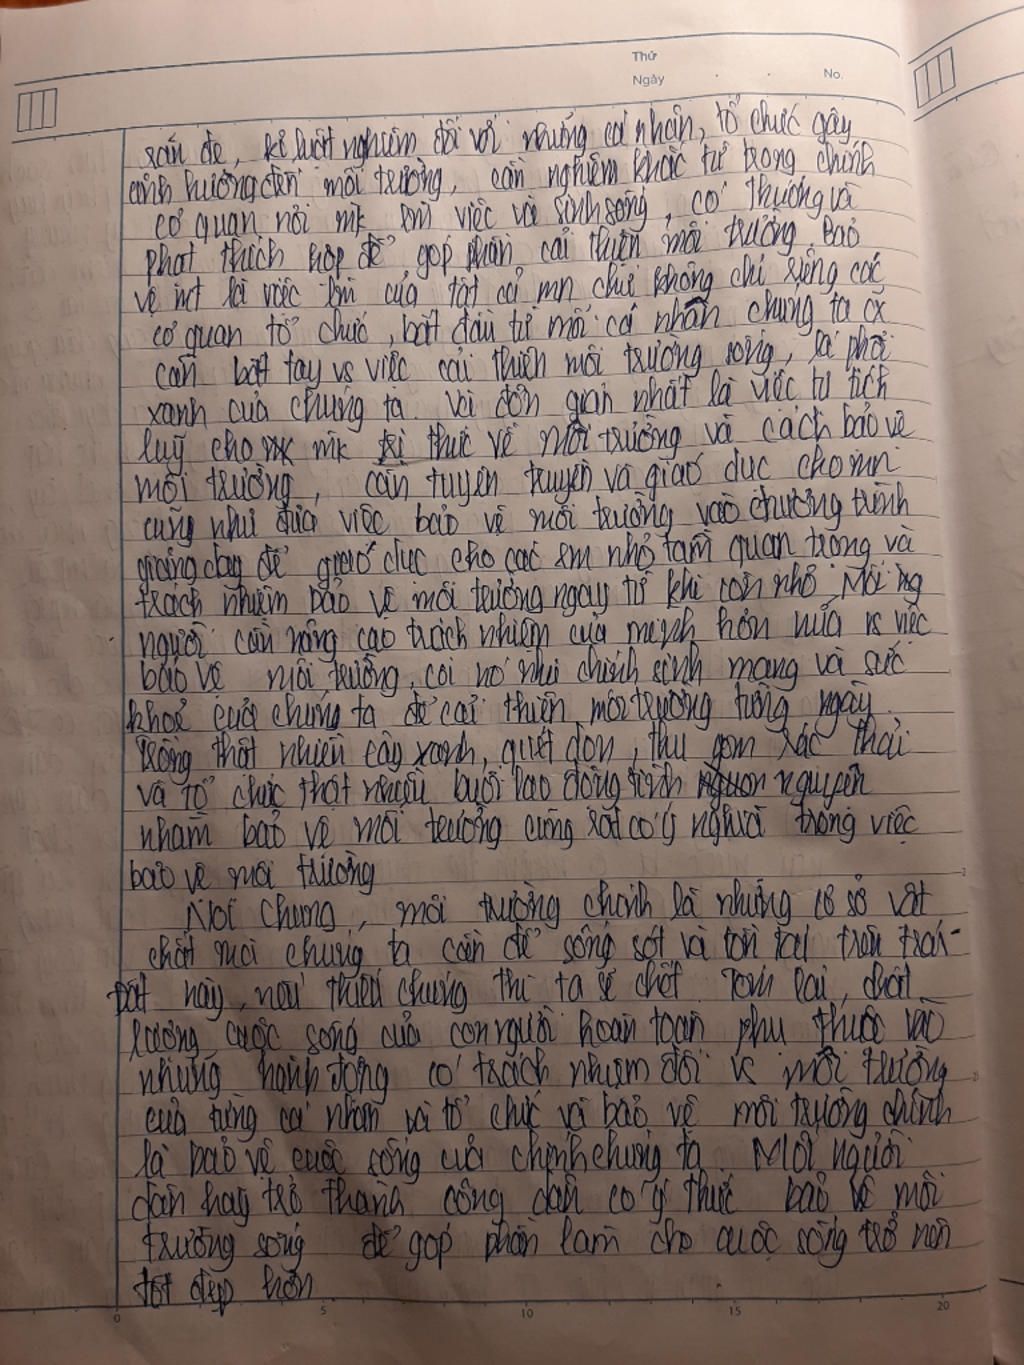 Thứ
Ngày No.
răn đe, kỉ luật nghiêm đối với những cá nhân, tổ chức gây
ảnh hưởng đến môi trường, cần nghiêm khắc từ trong chính
cơ quan nơi mk làm việc và sinh sống, có thưởng và
phạt thích hợp để góp phần cải thiện môi trường. Bảo
vệ mt là việc làm của tất cả mn chứ không chỉ riêng các
cơ quan tổ chức, bắt đầu từ mỗi cá nhân chúng ta
cần bắt tay vs việc cải thiện môi trường sống, lá phổi
xanh của chúng ta. Và đơn giản nhất là việc tự tích
luỹ cho mk kiến thức về môi trường và cách bảo vệ
môi trường, cần tuyên truyền và giáo dục cho mn
cũng như đưa việc bảo vệ môi trường vào chương trình
giảng dạy để giáo dục cho các em nhỏ tầm quan trọng và
trách nhiệm bảo vệ môi trường ngay từ khi còn nhỏ. Mỗi
người cần nâng cao trách nhiệm của mình hơn nữa vs việc
bảo vệ môi trường, coi nó như chính sinh mạng và sức
khoẻ của chúng ta để cải thiện môi trường từng ngày.
Trồng thật nhiều cây xanh, quét dọn, thu gom rác thải
và tổ chức thật nhiều buổi lao động tình nguyện
nhằm bảo vệ môi trường cũng rất có ý nghĩa trong việc
bảo vệ môi trường
Nói chung, môi trường chính là những cơ sở vật
chất mà chúng ta cần để sống sót và tồn tại trên trái
đất này, nếu thiếu chúng thì ta sẽ chết. Tóm lại, chất
lượng cuộc sống của con người hoàn toàn phụ thuộc vào
những hành động có trách nhiệm đối vs môi trường
của từng cá nhân và tổ chức và bảo vệ môi trường chính
là bảo vệ cuộc sống của chính chúng ta. Mỗi người
dân hãy trở thành công dân có ý thức bảo vệ môi
trường sống để góp phần làm cho cuộc sống trở nên
tốt đẹp hơn
0 5 10 15 20